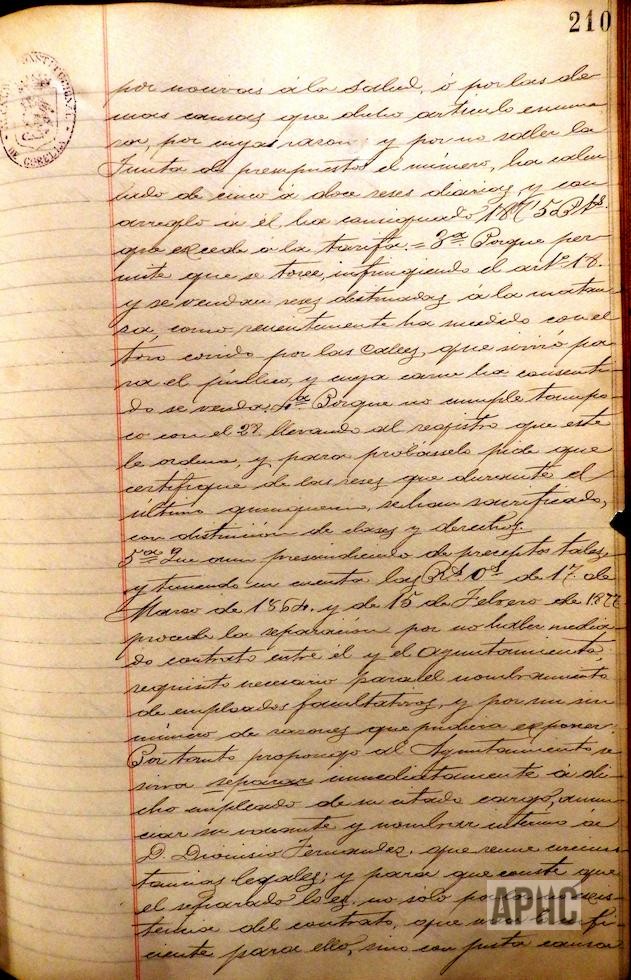 210
AYUNTAMIENTO CONSTITUCIONAL DE CORELLA
por nocivas á la salud, ó por las de
mas causas que dicho articulo enume
ra, por cuya razon y por no saber la
Junta de presupuestos el número, ha calcu
lado de cinco á doce reses diarias, y con
arreglo á él ha consignado 1875 Pts.
que excede á la tarifa. = 3ª Porque per
mite que se toree, infringiendo el artº 18.
y se vendan reses destinadas á la matan
za, como recientemente ha sucedido con el
toro corrido por las calles, que sirvió pa
ra el público, y cuya carne ha consenti
do se venda. 4ª Porque no cumple tampo
co con el 22 llevando al registro que este
le ordena, y para probárselo pide que
certifique de las reses que durante el
último quinquenio, se han sacrificado,
con distincion de clases y derechos.
5ª Que aun prescindiendo de preceptos tales,
y teniendo en cuenta las Rs Os de 17 de
Marzo de 1864. y de 15 de Febrero de 1877
procede la separacion por no haber media
do contrato entre él y el Ayuntamiento,
requisito necesario para el nombramiento
de empleados facultativos, y por un sin
número de razones que pudiera exponer.
Por tanto propongo al Ayuntamiento se
sirva separar inmediatamente á di
cho empleado de su citado cargo, anun
ciar su vacante y nombrar interino a
D. Dionisio Fernandez, que reune circuns
tancias legales; y para que conste que
el separado lo es, no sólo por la inexis
tencia del contrato, que sufi
ciente para ello, sino con justa causa
APHC